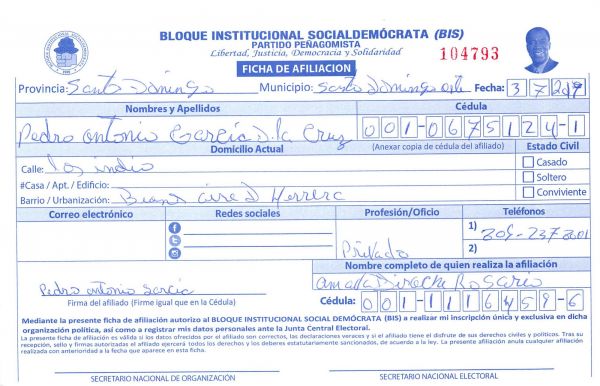 BLOQUE INSTITUCIONAL SOCIALDEMÓCRATA (BIS)
PARTIDO PEÑAGOMISTA
Libertad, Justicia, Democracia y Solidaridad
104793
FICHA DE AFILIACION
Provincia: Santo Domingo Municipio: Santo Domingo este Fecha: 3 7 2019
Nombres y Apellidos Cédula
Pedro Antonio García D la Cruz 001-0675124-1
Domicilio Actual (Anexar copia de cédula del afiliado) Estado Civil
Calle: los indio Casado
#Casa / Apt. / Edificio: Soltero
Barrio / Urbanización: Herrera Conviviente
Correo electrónico Redes sociales Profesión/Oficio Teléfonos
1) 809-237
Privado 2)
Nombre completo de quien realiza la afiliación
Pedro antonio Garcia Rosario
Firma del afiliado (Firme igual que en la Cédula) Cédula: 001-1116459-6
Mediante la presente ficha de afiliación autorizo al BLOQUE INSTITUCIONAL SOCIAL DEMÓCRATA (BIS) a realizar mi inscripción única y exclusiva en dicha
organización política, así como a registrar mis datos personales ante la Junta Central Electoral.
La presente ficha de afiliación es válida si los datos ofrecidos por el afiliado son correctos, las declaraciones veraces y si el titular tiene el disfrute de sus derechos civiles y políticos. Tras su
recepción, sello y firmas autorizadas el afiliado ejercerá todos los derechos y los deberes estatutariamente sancionados, de acuerdo a la ley. La presente afiliación anula cualquier afiliación
realizada con anterioridad a la fecha que aparece en esta ficha.
SECRETARIO NACIONAL DE ORGANIZACIÓN SECRETARIO NACIONAL ELECTORAL